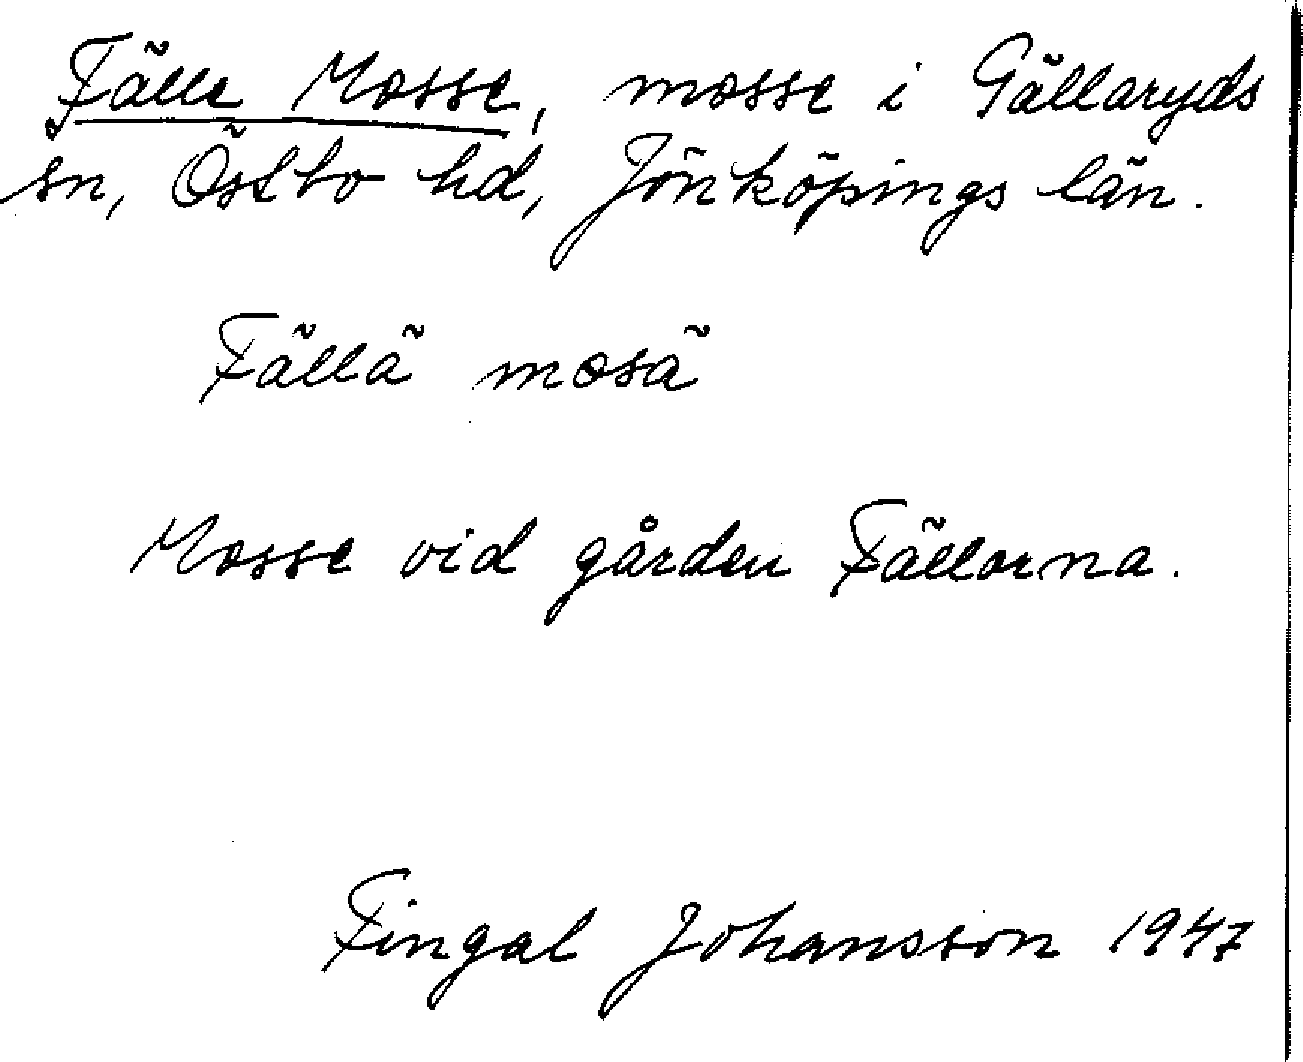 Fälle Mosse, mosse i Gällaryds
sn, Östbo hd, Jönköpings län.
Fällä mosä
Mosse vid gården Fällorna.
Fingal Johansson 1947